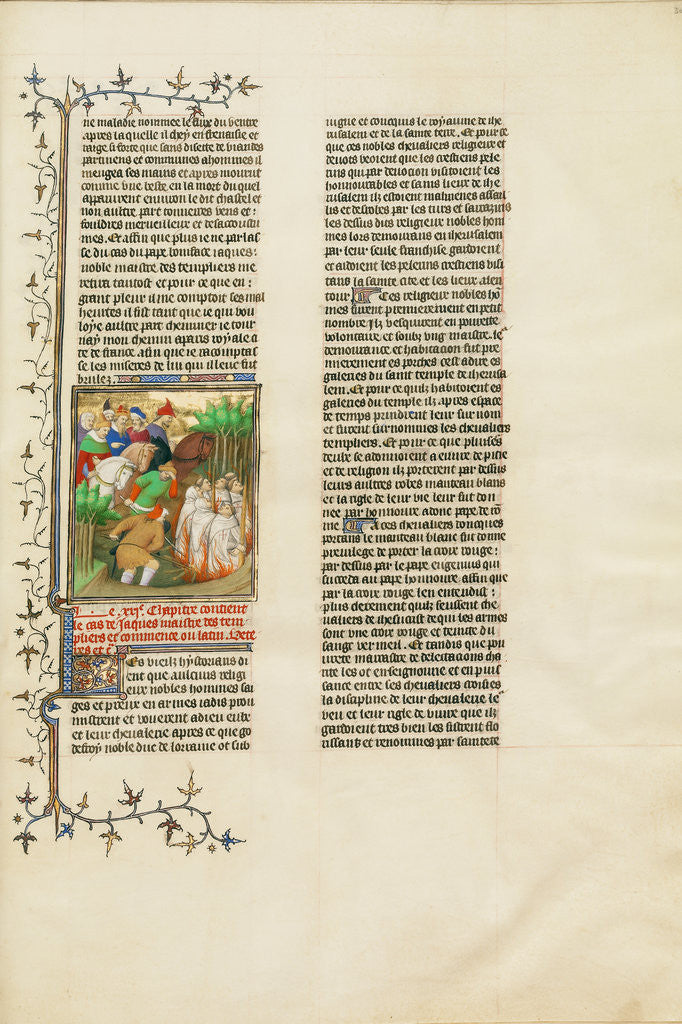 ne maladie nommee le flux du ventre
apres la quelle il chey en frenaisie et
raige si forte que sans disette de viandes
partinens et communes a hommes il
mengea ses mains et apres mourut
comme une beste. en la mort du quel
apparurent environ le dit chastel et
non aultre part tonnerres vens et
fouldres merveilleux et desacoustu
mes. Et affin que plus ie ne parlas
se du cas du pape boniface iaques
noble maistre des templiers me
retira tantost et pour ce que en
grant pleur il me comptoit ses mal
heurtes il fist tant que ie qui vou
loye aultre part cheminer ie tour
nay mon chemin a paris royale ci
te de france. affin que ie racomptas
se les miseres de lui qui illeuc fut
brulez.
le xxi.e Chapitre contient
le cas de Jaques maistre des tem
pliers et commence ou latin. Vete
res et c.
Les vieilz hystorians di
ent que aulcuns religi
eux nobles hommes sa
ges et preux en armes iadis prou
mistrent et vouerent a dieu eulx
et leur chevalerie apres ce que go
deffroy noble duc de lorraine ot sub
iugue et conquis le royaume de ihe
rusalem et de la sainte terre. Et pour ce
que ces nobles chevaliers religieux et
devots veoient que les crestiens pele
rins qui par devocion visitoient les
honnourables et sains lieux de ihe
rusalem ilz estoient malmenes assail
lis et desrobes par les turs et sarrazins
les dessus dits religieux nobles hom
mes lors demourans en iherusalem
par leur seule franchise gardoient
et aidoient les pelerins crestiens visi
tans la sainte cite et les lieux alen
tour. Ces religieux nobles hom
mes furent premierement en petit
nombre ilz vesquirent en pourete
voluntaire et soubz ung maistre. le
demourance et habitacion fut pre
mierement es porches cest a dire es
galeries du saint temple de iherusa
lem. Et pour ce quilz habitoient es
galeries du temple ilz apres espace
de temps prindrent leur surnom
et furent surnommes les chevaliers
templiers. Et pour ce que pluiseurs
deulx se adonnoient a euvre de pitie
et de religion ilz porterent par dessus
leurs aultres robes manteau blanc
et la rigle de leur vie leur fut don
nee par honnoure adonc pape de rom
me. A ces chevaliers doncques
portans le manteau blanc fut donne
previlege de porter la croix rouge
par dessus par le pape eugenius qui
succeda au pape honnoure affin que
par la croix rouge len entendist
plus clerement quilz feussent che
valiers de ihesucrist de qui les armes
sont une croix rouge et teinte du
sang vermeil. Et tandis que pou
urete marrastre de delectacions char
nele les ot en seignourie et en puis
sance entre ses chevaliers croisies
la discipline de leur chevalerie le
veu et leur rigle de vivre que ilz
gardoient tres bien les fistrent flo
rissans et renommes par saintete